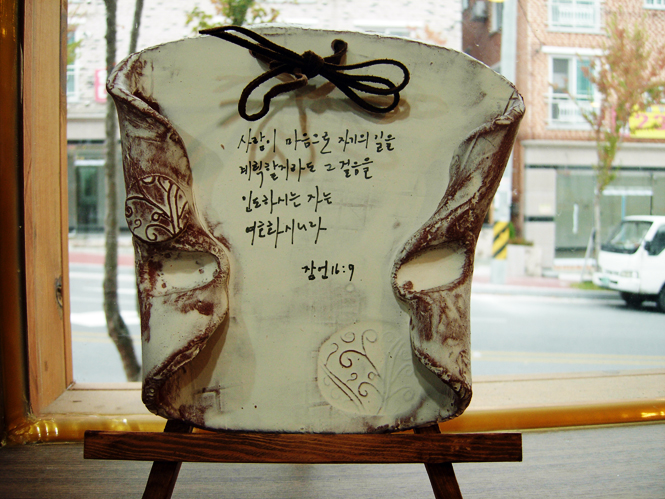 사람이 마음으로 자기의 일을
계획할지라도 그 걸음을
인도하시는 자는
여호와시니라
잠언 16:9